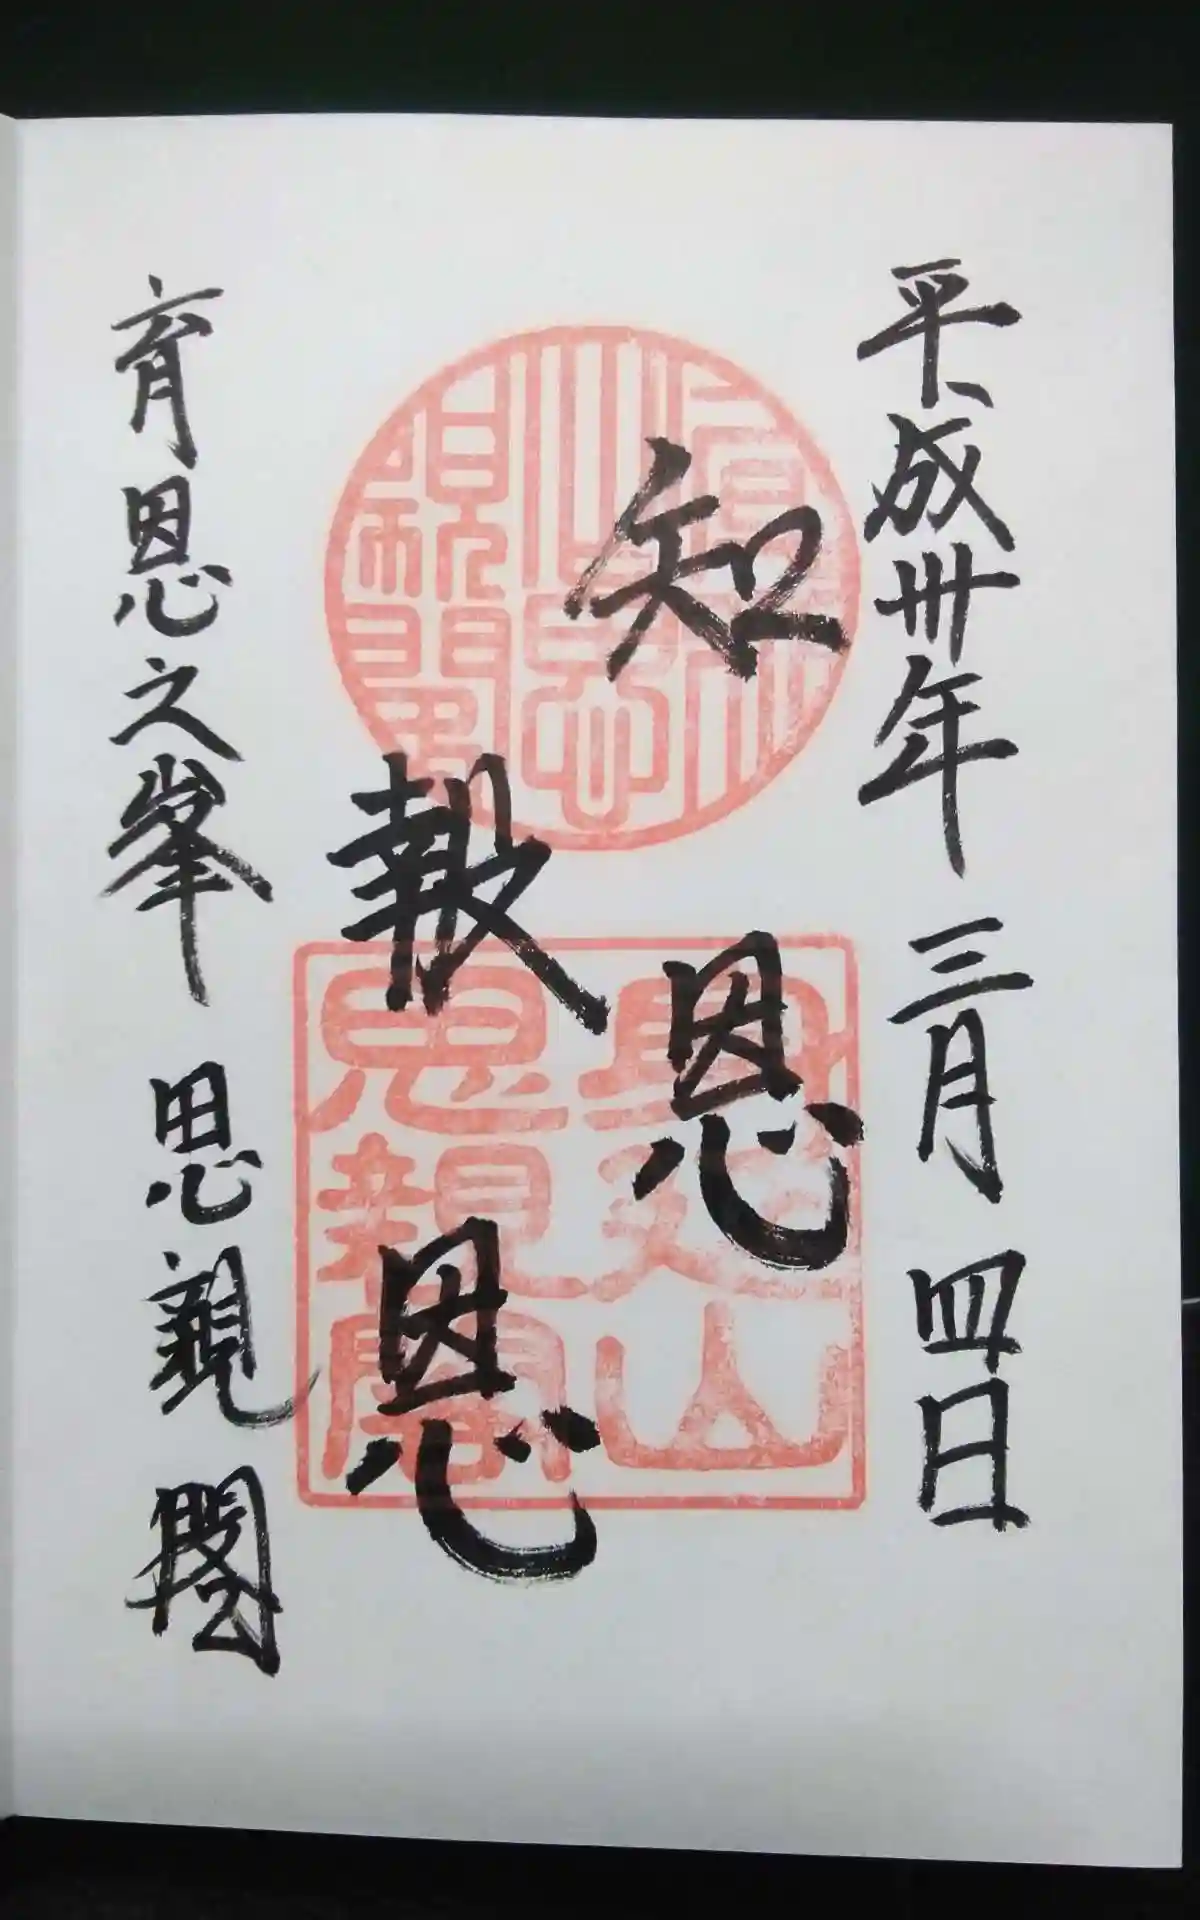 平成卅年 三月 四日
知恩
報恩
育恩之峯 思親閣
身延山
思親閣